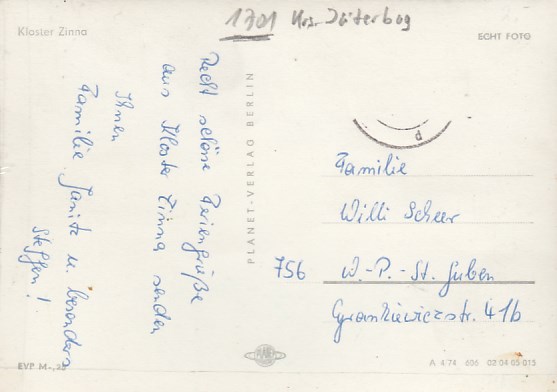 1701 Krs. Jüterbog
Kloster Zinna
ECHT FOTO
Recht schöne Feriengrüße
aus Kloster Zinna senden
Ihnen
Familie Janitz u. besonders
Steffen!
PLANET-VERLAG BERLIN
Familie
Willi Scheer
756 W.-P.-St. Guben
Grankiewiczstr. 41b
EVP M-,25
PLANET
A 4 74 606 02 04 05 015